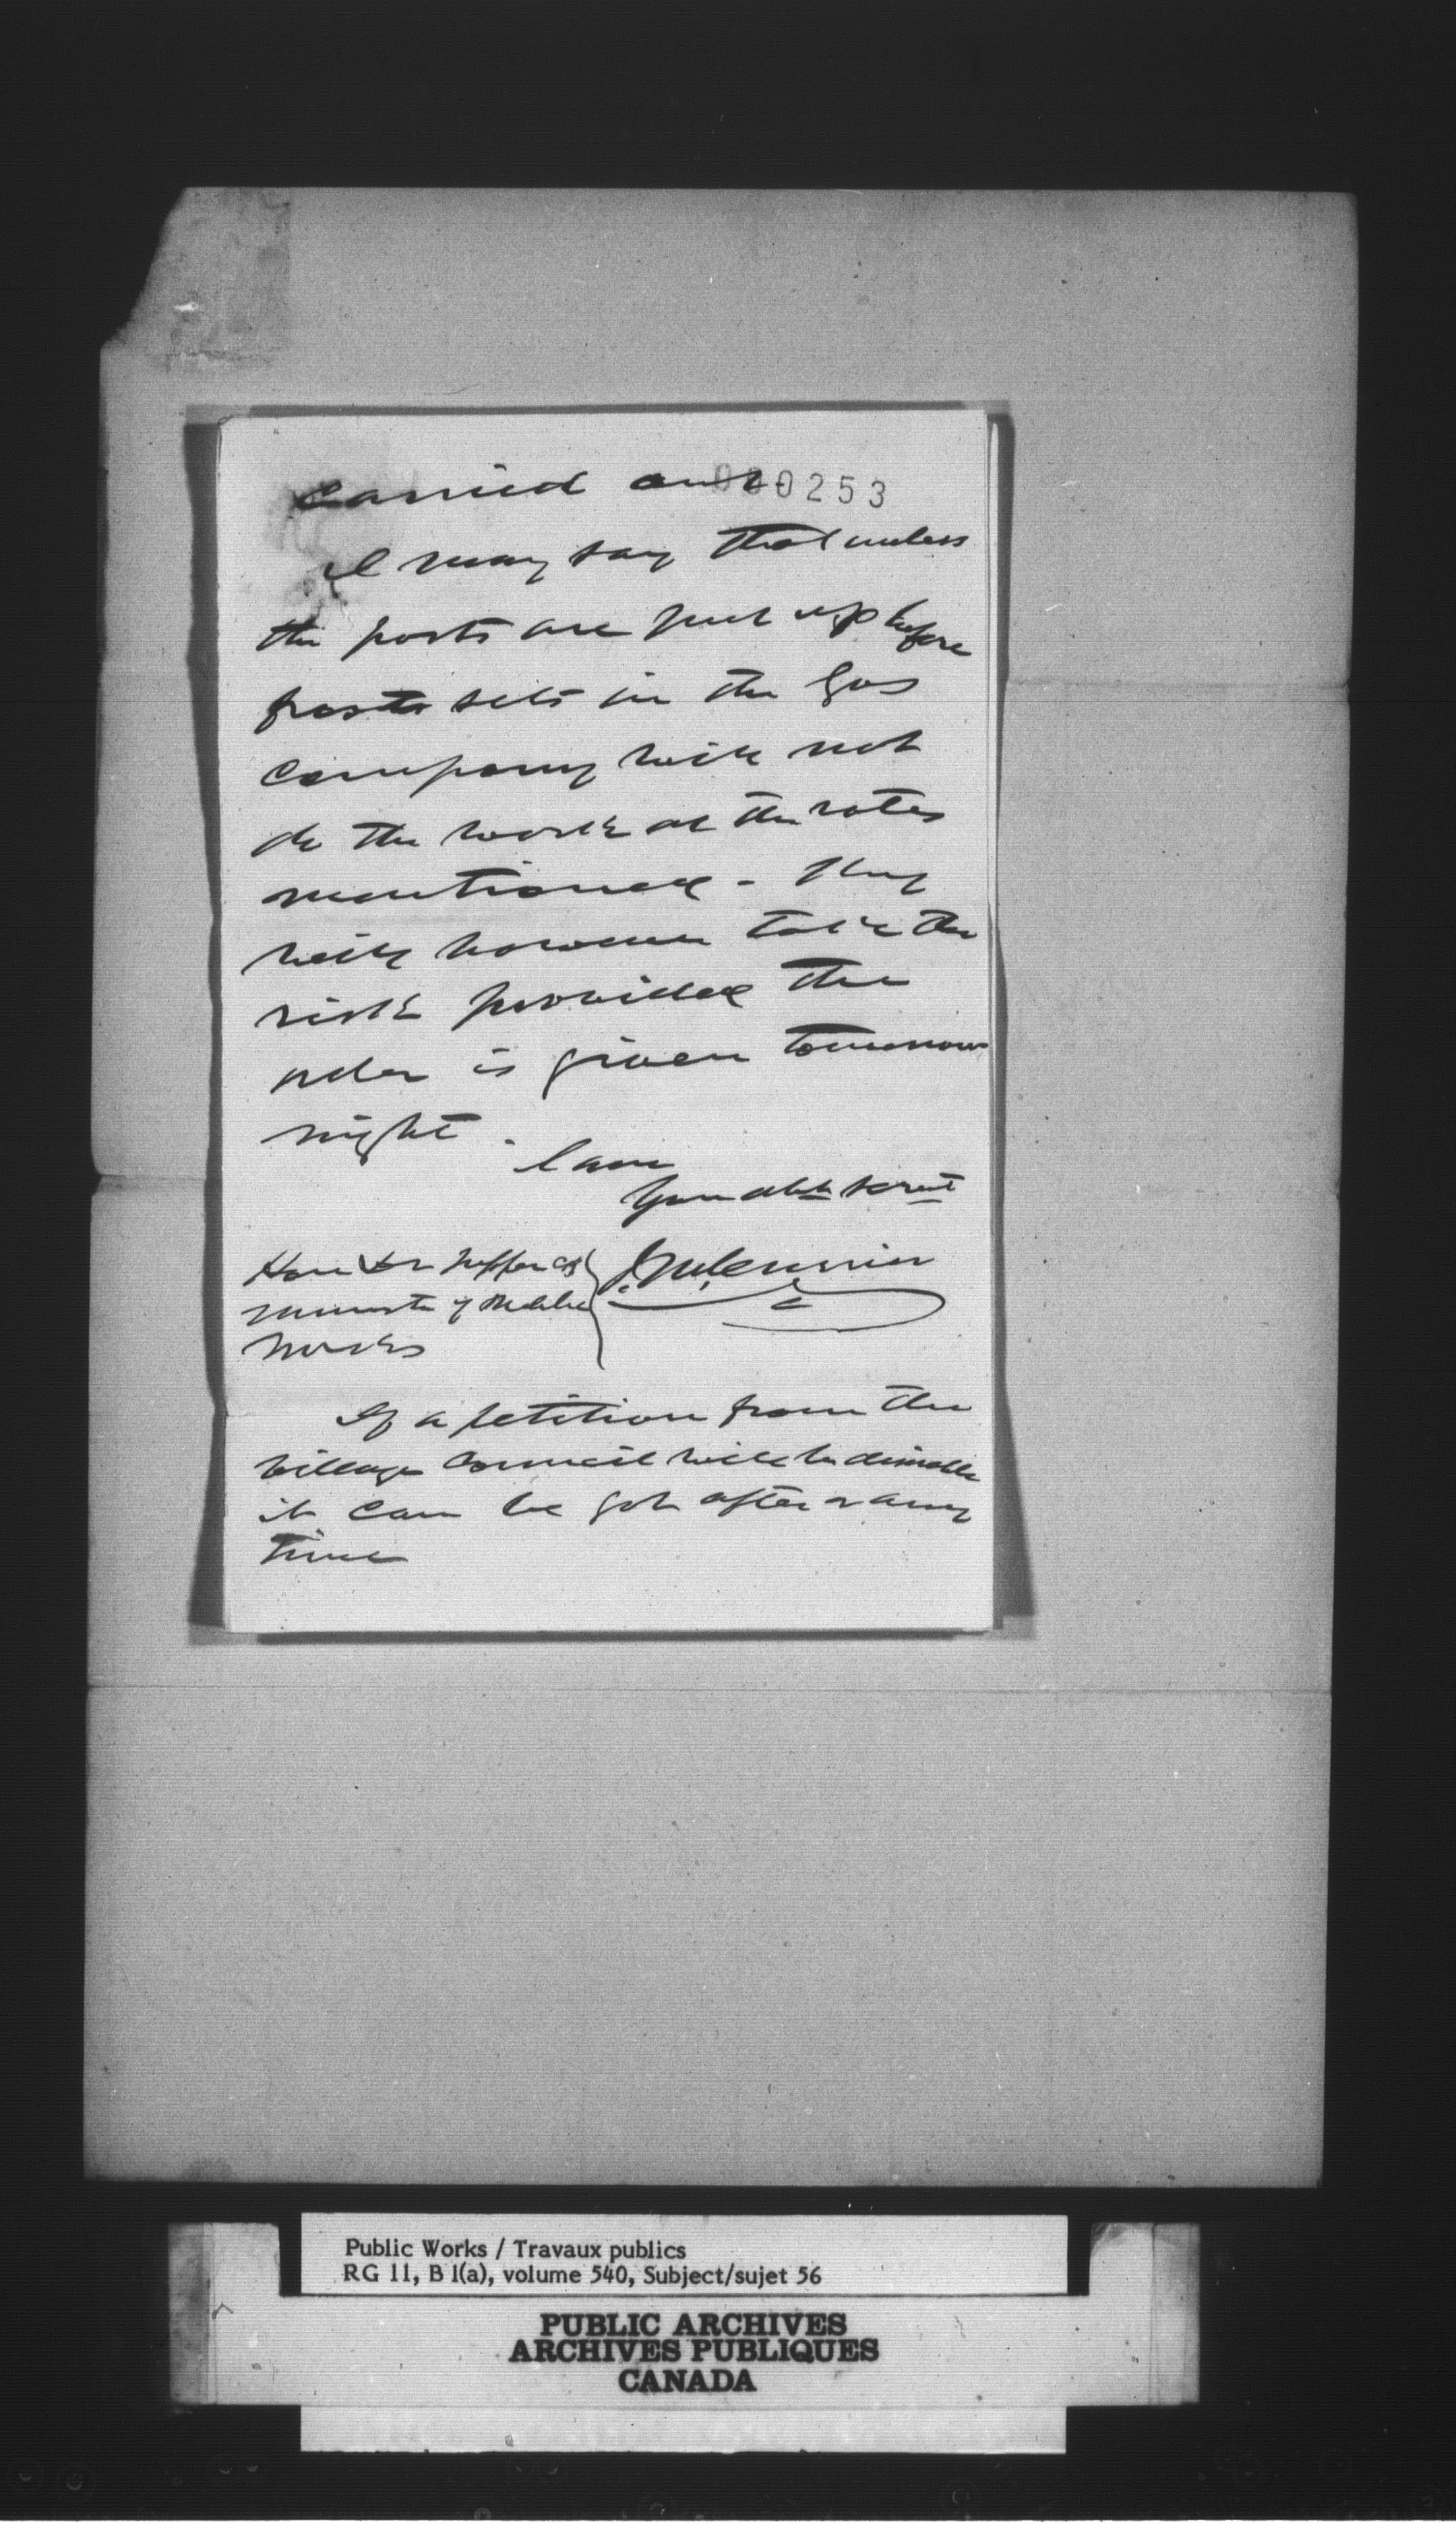 carried out
000253
I may say that unless
the posts are put up before
frosts sets in the Gas
company will not
do the work at the rates
mentioned - They
will however take the
risk provided the
order is given tomorrow
night.
I am
Your obdt servt
Hon
Minister of Public
Works
If a petition from the
village council will be desirable
it can be got after any
time
Public Works / Travaux publics
RG 11, B 1(a), volume 540, Subject/sujet 56
PUBLIC ARCHIVES
ARCHIVES PUBLIQUES
CANADA